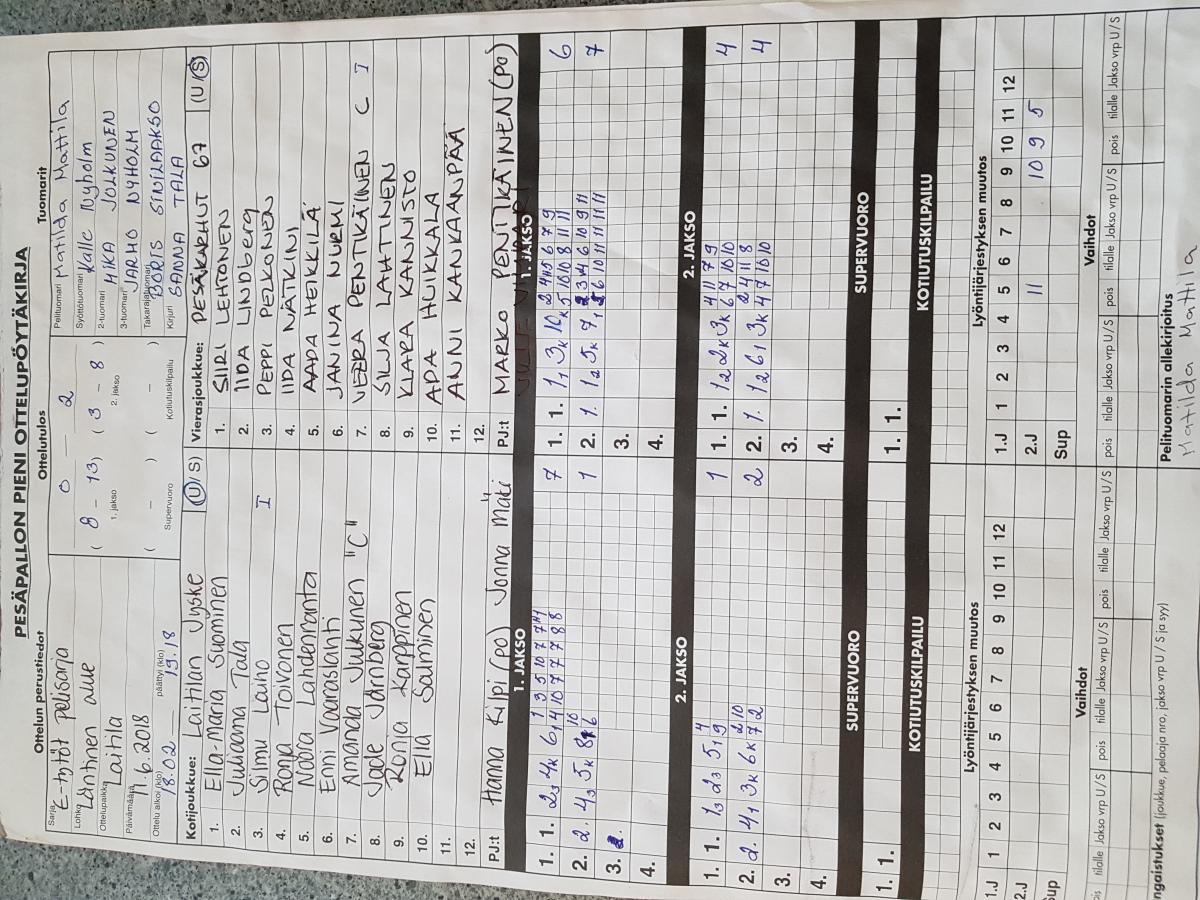 PESÄPALLON PIENI OTTELUPÖYTÄKIRJA
Ottelun perustiedot
Sarja E-tytöt pelisarja
Lohko Läntinen alue
Ottelupaikka Laitila
Päivämäärä 11.6.2018
Ottelu alkoi (klo) 18.02 päättyi (klo) 19.18
Ottelutulos
0 — 2
( 8 - 13 ) ( 3 - 8 )
1. jakso 2. jakso
( - ) ( - )
Supervuoro Kotiutuskilpailu
Tuomarit
Pelituomari Matilda Mattila
Syöttötuomari Kalle Nyholm
2-tuomari MIKA JOLKUNEN
3-tuomari JARMO NYHOLM
Takarajatuomari BORIS SINILAAKSO
Kirjuri SANNA TALA
Kotijoukkue: Laitilan Jyske (U/S)
1. Ella-Maria Suominen
2. Juliaana Tala
3. Silmu Laiho I
4. Ronja Toivonen
5. Noora Lahdenranta
6. Enni Vaaraslahti
7. Amanda Julkunen "C"
8. Jade Järnberg
9. Ronja Karppinen
10. Ella Salminen
11.
12.
PJ:t Hanna Kilpi (PO) Jonna Mäti
Vierasjoukkue: PESÄKARHUT 67 (U/S)
1. SIIRI LEHTONEN
2. IIDA LINDBERG
3. PEPPI PELKONEN
4. IIDA NÄTKINI
5. AADA HEIKKILÄ
6. JANINA NURMI
7. VEERA PENTIKÄINEN C I
8. SILJA LAHTINEN
9. KLARA KANNISTO
10. ADA HUIKKALA
11. ANNI KANKAANPÄÄ
12.
PJ:t MARKO PENTIKÄINEN (PO)
1. JAKSO
1. 1. 7
2. 2. 1
3.
4.
2. JAKSO
1. 1. 1
2. 2. 2
3.
4.
SUPERVUORO
1. 1.
KOTIUTUSKILPAILU
1. JAKSO
1. 1. 6
2. 1. 7
3.
4.
2. JAKSO
1. 1. 4
2. 1. 4
3.
4.
SUPERVUORO
1. 1.
KOTIUTUSKILPAILU
Lyöntijärjestyksen muutos
1.J 1 2 3 4 5 6 7 8 9 10 11 12
2.J
Sup
Lyöntijärjestyksen muutos
1.J 1 2 3 4 5 6 7 8 9 10 11 12
2.J 11 10 9 5
Sup
Vaihdot
pois tilalle Jakso vrp U/S pois tilalle Jakso vrp U/S pois tilalle Jakso vrp U/S
Vaihdot
pois tilalle Jakso vrp U/S pois tilalle Jakso vrp U/S pois tilalle Jakso vrp U/S
ngaistukset (joukkue, pelaaja nro, jakso vrp U / S ja syy)
Pelituomarin allekirjoitus
Matilda Mattila